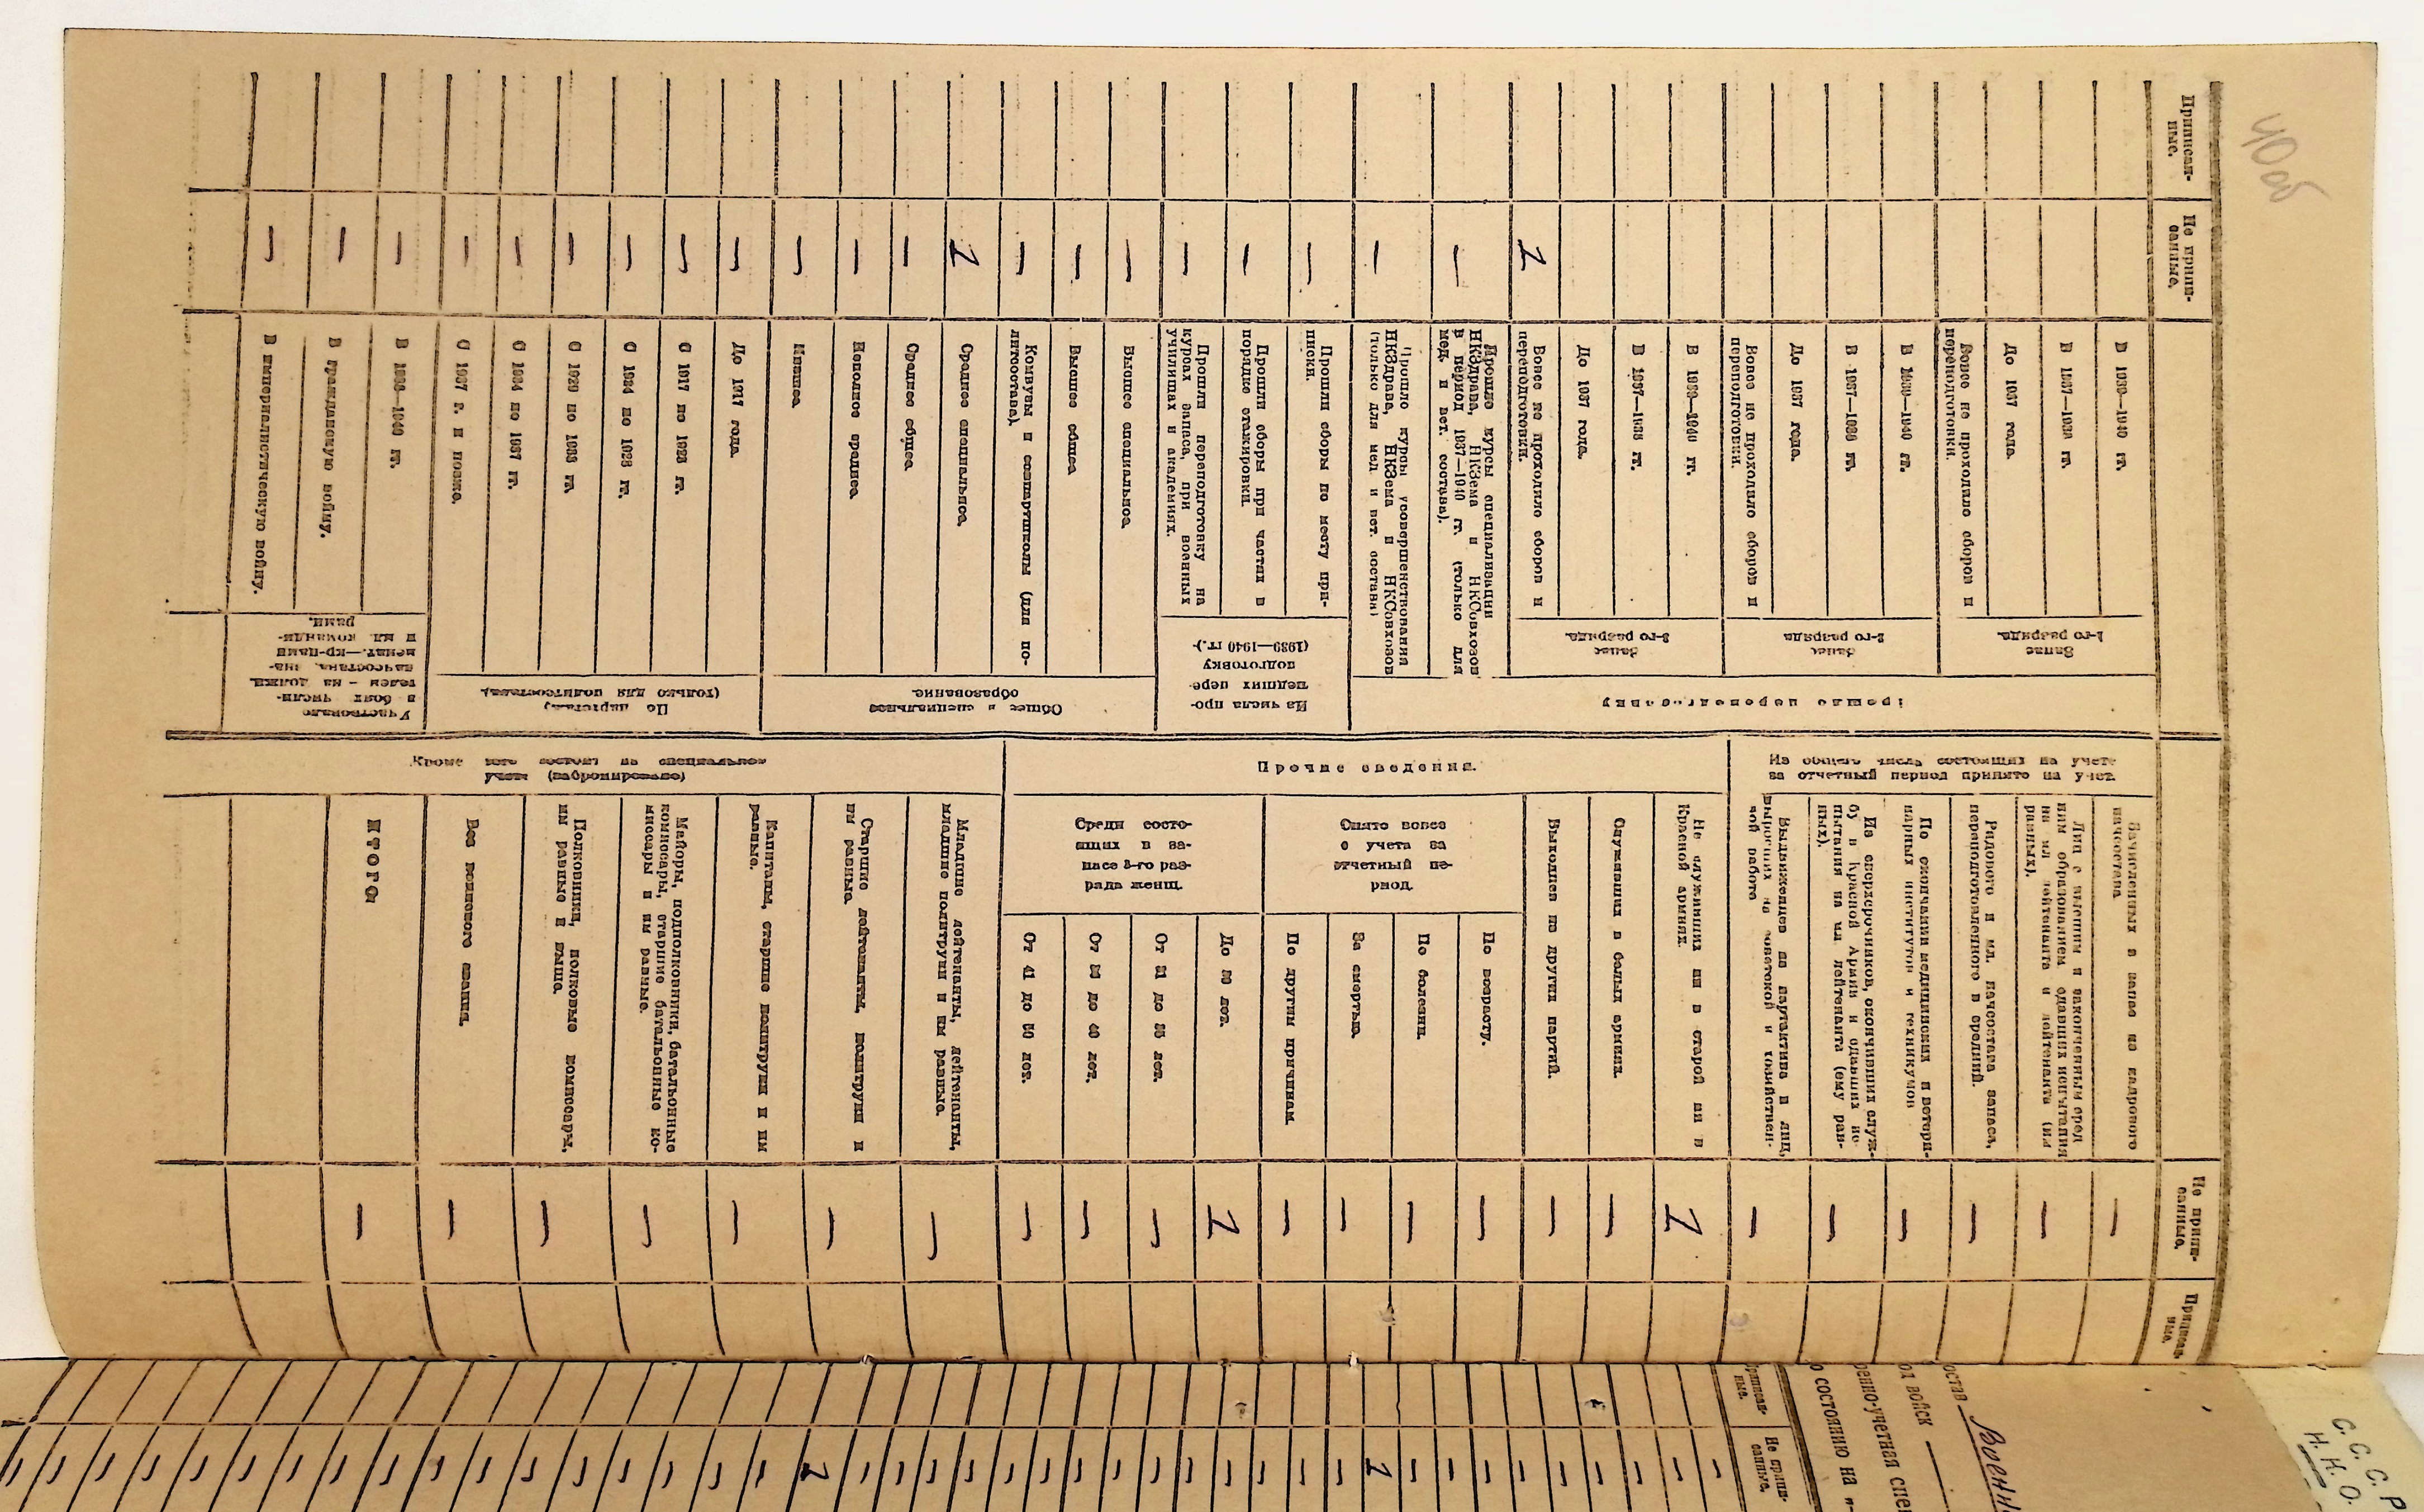 40об
Приписан-
ные.
Не припи-
санные.
Прошло переподготовку
Запас
1-го разряда.
В 1939—1940 гг.
В 1937—1938 гг.
До 1937 года.
Вовсе не проходило сборов и
переподготовки.
Запас
2-го разряда
В 1939—1940 гг.
В 1937—1938 гг.
До 1937 года.
Вовсе не проходило сборов и
переподготовки.
Запас
3-го разряда.
В 1939—1940 гг.
В 1937—1938 гг.
До 1937 года.
Вовсе не проходило сборов и
переподготовки.
1
Прошло курсы специализации
НКЗдрава, НКЗема и НКСовхозов
в период 1937—1940 гг. (только для
мед. и вет. состава).
—
Прошло курсы усовершенствования
НКЗдрава, НКЗема и НКСовхозов
(только для мед и вет. состава)
—
Из числа про-
шедших пере-
подготовку
(1939—1940 гг.).
Прошли сборы по месту при-
писки.
—
Прошли сборы при частях в
порядке стажировки.
—
Прошли переподготовку на
курсах запаса, при военных
училищах и академиях.
—
Общее и специальное
образование.
Высшее специальное.
—
Высшее общее.
—
Комвузы и совпартшколы (для по-
литсостава).
—
Среднее специальное.
1
Среднее общее.
—
Неполное среднее.
—
Низшее.
—
По партстажу
(только для политсостава).
До 1917 года.
—
С 1917 по 1923 гг.
—
С 1924 по 1928 гг.
—
С 1929 по 1933 гг.
—
С 1934 по 1937 гг.
—
С 1937 г. и позже.
—
Участвовало
в боях числи-
телем – на должн.
начсостава, зна-
менат.—кр-цами
и мл. команди-
рами.
В 1938—1940 гг.
—
В гражданскую войну.
—
В империалистическую войну.
—
Из общего числа состоящих на учете
за отчетный период принято на учет.
Зачисленных в запас из кадрового
начсостава
—
Лиц с высшим и законченным сред
ним образованием сдавших испытания
на мл лейтенанта и лейтенанта (им
равных).
—
Рядового и мл. начсостава запаса,
переподготовленного в средний.
—
По окончании медицинских и ветери-
нарных институтов и техникумов
—
Из сверхсрочников, окончивших служ-
бу в Красной Армии и сдавших ис-
пытания на мл лейтенанта (ему рав-
ных).
—
Выдвиженцев из партактива и лиц,
выросших на советской и хозяйствен-
ной работе
—
Прочие сведения.
Не служивших ни в старой ни в
Красной армиях.
1
Служивших в белых армиях.
—
Выходцев из других партий.
—
Снято вовсе
с учета за
отчетный пе-
риод.
По возрасту.
—
По болезни.
—
За смертью.
—
По другим причинам
—
Среди состо-
ящих в за-
пасе 3-го раз-
ряда женщ.
До 30 лет.
1
От 31 до 35 лет.
—
От 36 до 40 лет.
—
От 41 до 50 лет.
—
Кроме того состоит на специальном
учете (забронировано)
Младшие лейтенанты, лейтенанты,
младшие политруки и им равные.
—
Старшие лейтенанты, политруки и
им равные.
—
Капитаны, старшие политруки и им
равные.
—
Майоры, подполковники, батальонные
комиссары, старшие батальонные ко-
миссары и им равные.
—
Полковники, полковые комиссары,
им равные и выше.
—
Без воинского звания.
—
ИТОГО
—
Не припи-
санные.
Приписан-
ные.
С. С. С. Р
Н. К. О.
остав Военн
ренно-учетная спец
од войск —
о состоянию на «
Приписан-
ные.
Не припи-
санные.
1
1